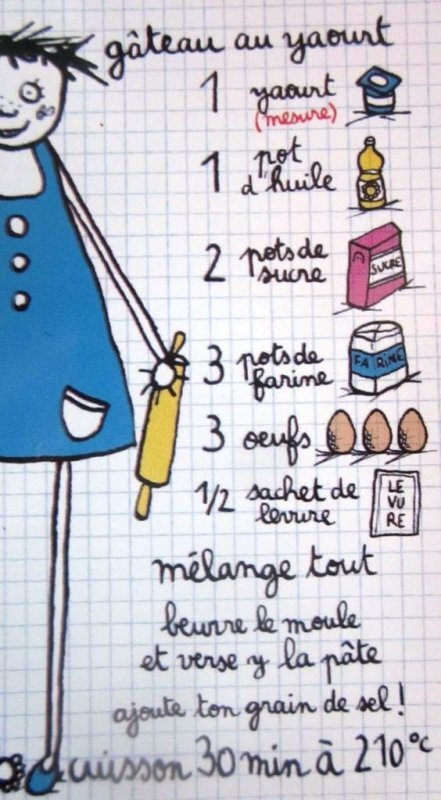 gâteau au yaourt
1 yaourt
(mesure)
1 pot
d'huile
2 pots de
sucre
SUCRE
3 pots de
farine
FARINE
3 oeufs
1/2 sachet de
levure
LE
VU
RE
mélange tout
beurre le moule
et verse y la pâte
ajoute ton grain de sel !
cuisson 30 min à 210°C